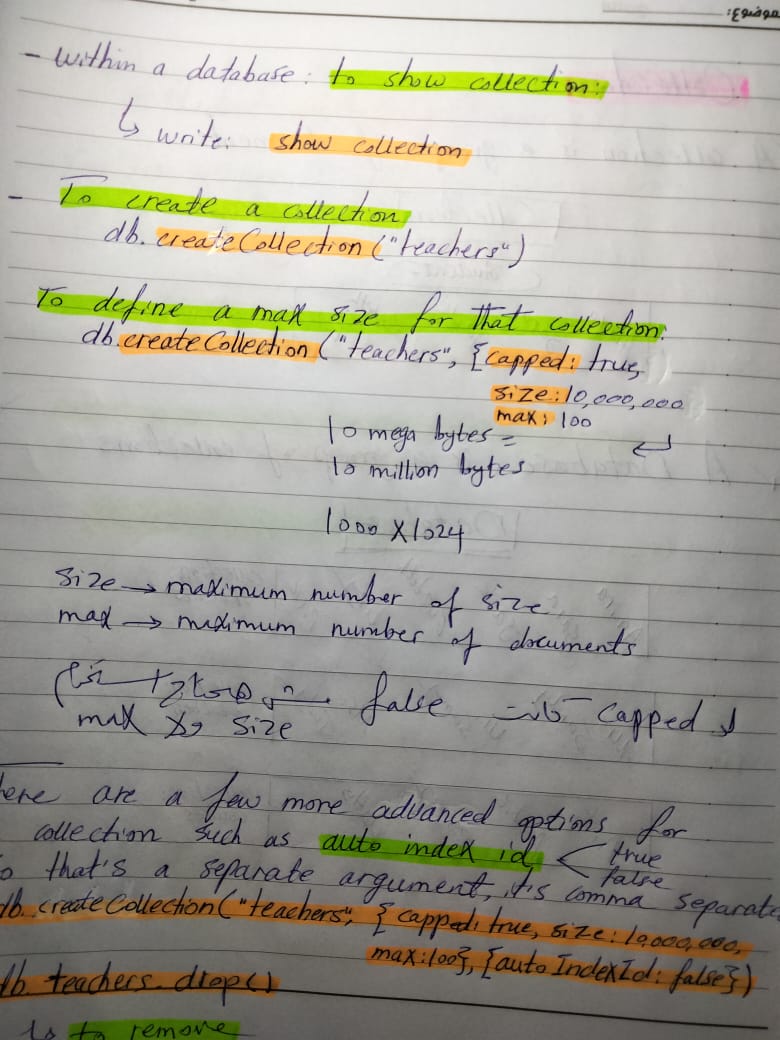 موضوع:
- Within a database: to show collection:
↳ write: show collection
- To create a collection
db.createCollection("teachers")
To define a max size for that collection:
db.createCollection("teachers", {capped: true,
size: 10,000,000
max: 100
10 mega bytes =
10 million bytes
1000 X 1024
size → maximum number of size
max → maximum number of documents
capped كانت false
max و size
here are a few more advanced options for
collection such as auto index id < true
false
so that's a separate argument, it's comma separate
db.createCollection("teachers", { capped: true, size: 10,000,000,
max:100}, {autoIndexId: false})
db.teachers.drop()
↳ to remove